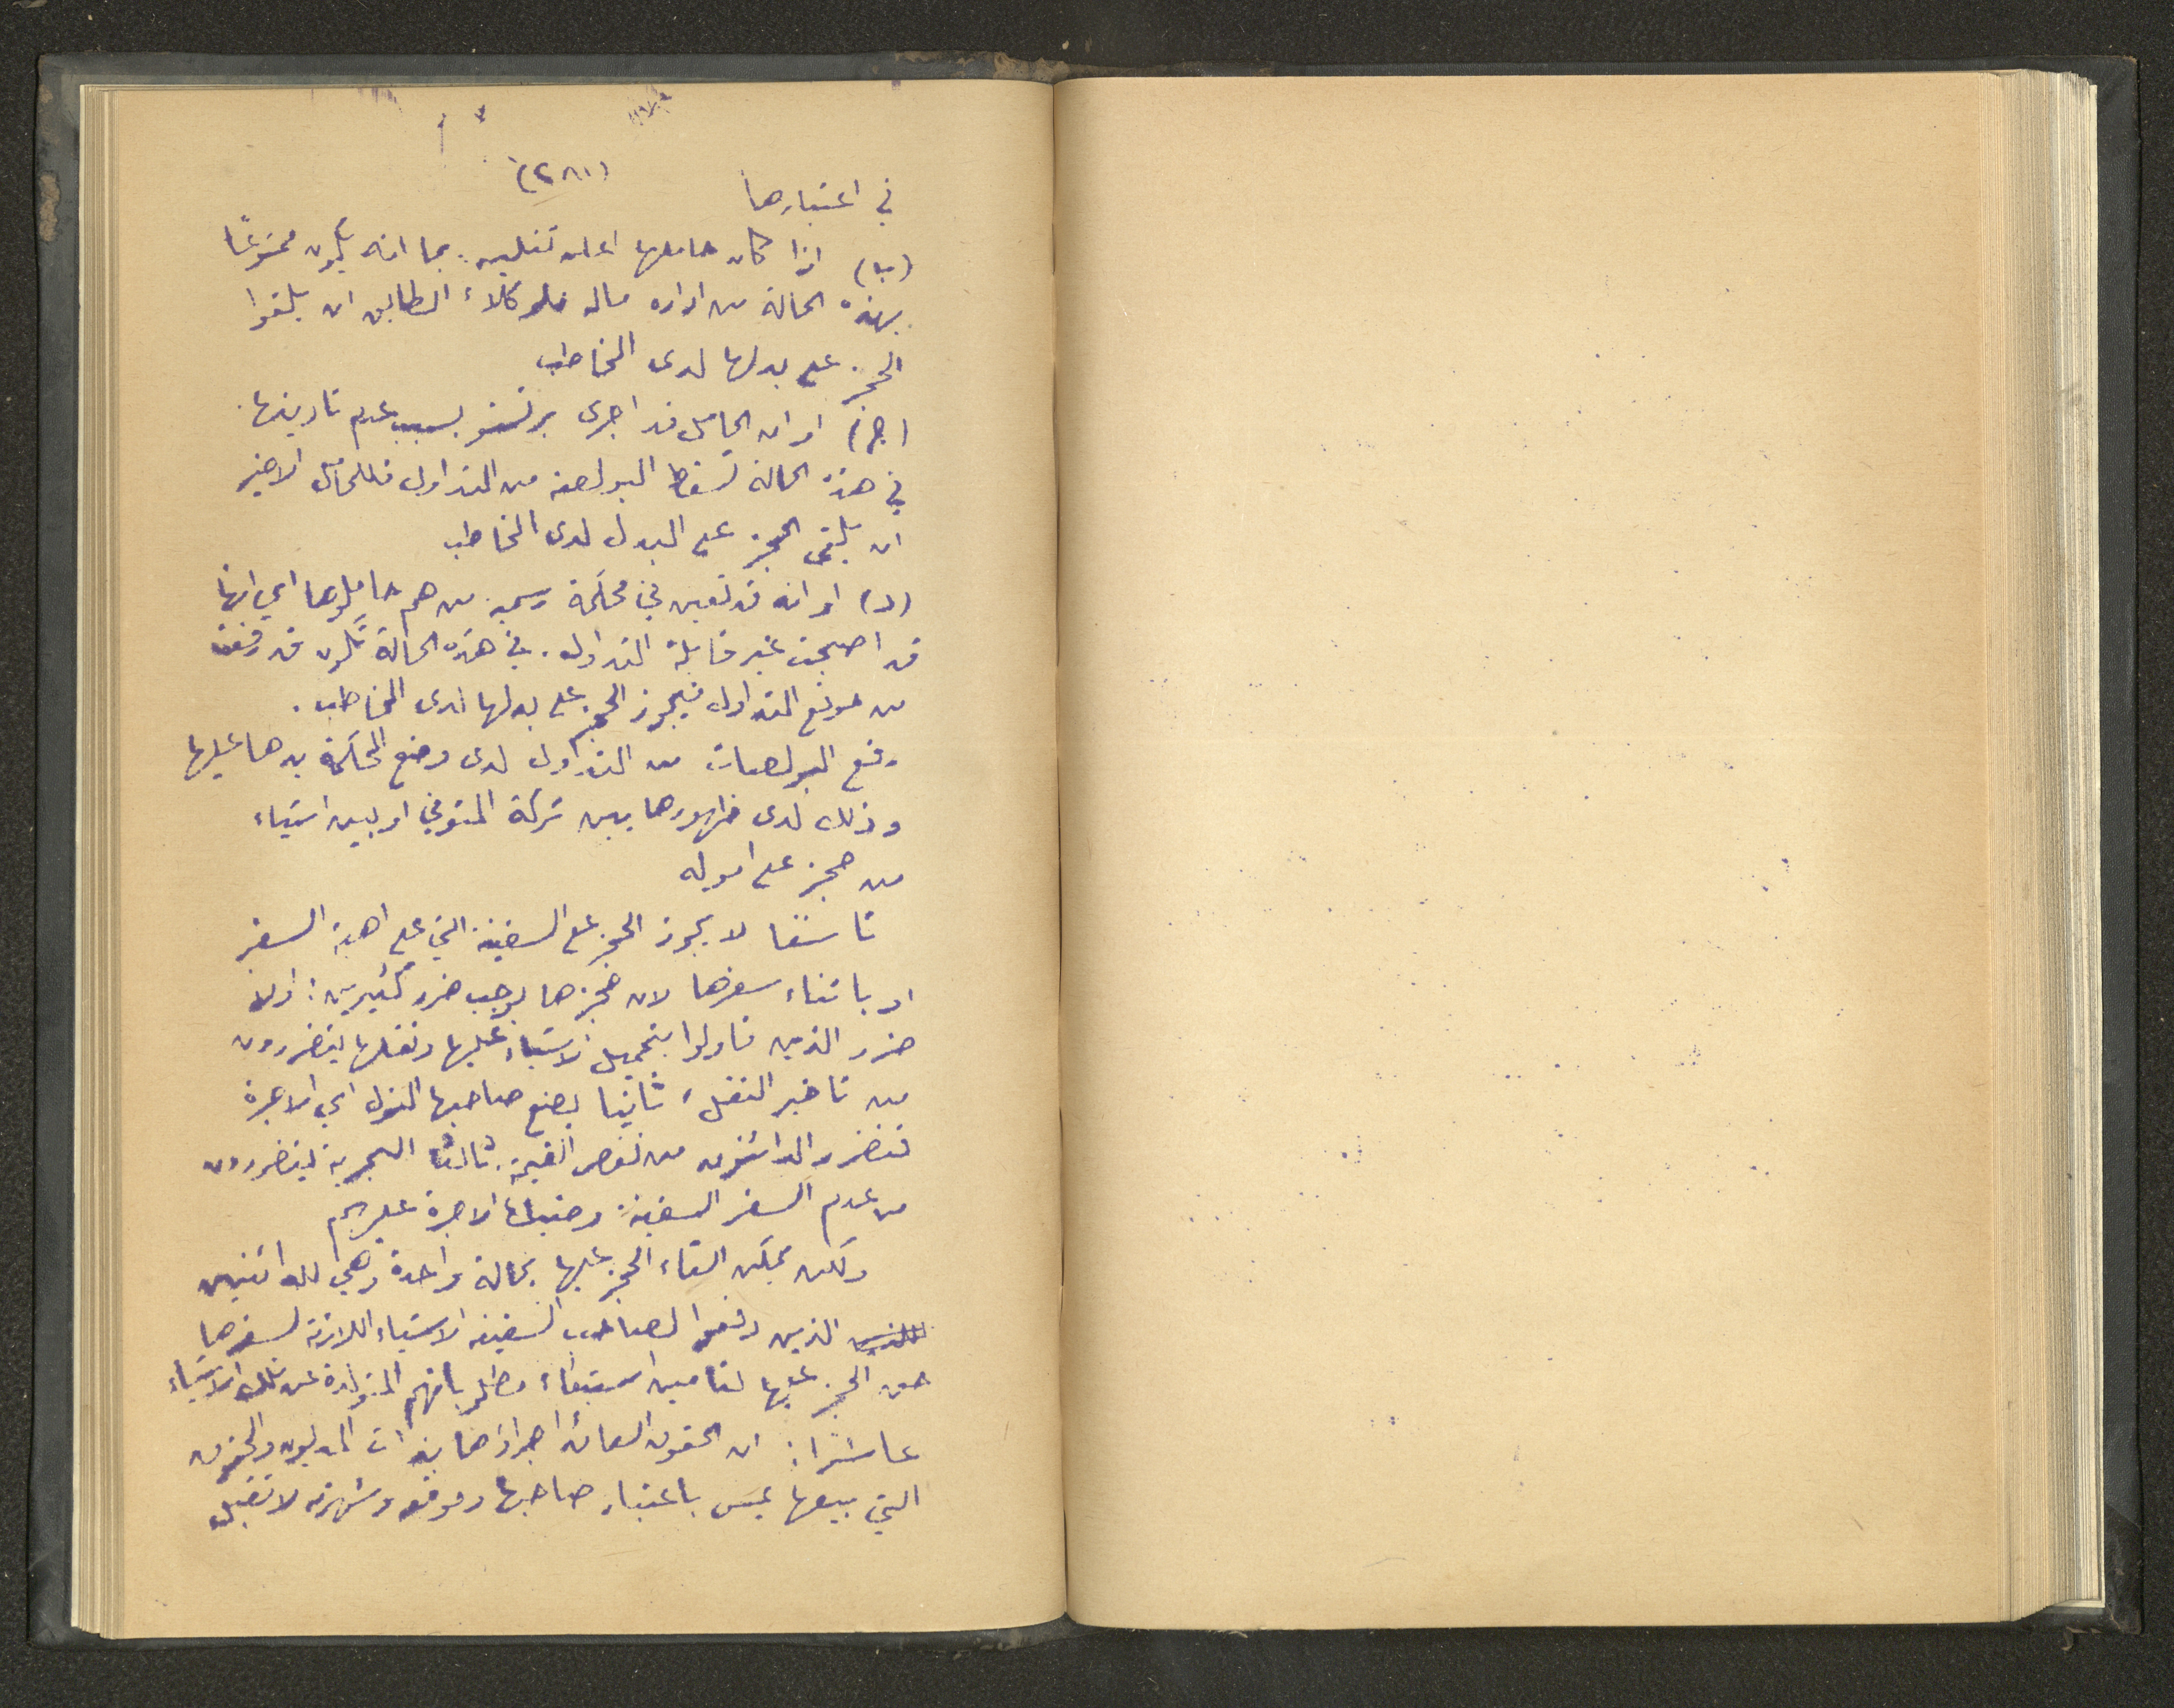 (٢٨١)
في اعتبارها
(ب) اذا كان حاملها اعلن تفليسه. بما انه يكون ممنوعًا
بهذه الحالة من ادارة ماله فلوكلاء الطابق ان يلقوا
الحجز على بدلها لدى المخاطب
(ج) او ان الحامل قد اجرى برتستو بسبب عدم تاديتها.
في هذه الحالة تسقط البوليصة من التداول فللحامل الاخير
ان يلقى الحجز على البدل لدى المخاطب
(د) او انه قد تعين في محكمة رسمية من هم حاملوها اي انها
قد اصبحت غير قابلة التداول. في هذه الحالة تكون قد رفعت
من موقع التداول فيجوز الحجز على بدلها لدى المخاطب.
رفع البولصات من التداول لدى وضع المحكمة يدها عليها
وذلك لدى ظهورها بين تركة المتوفي او بين اشياء
من حجز على امواله
تاسعًا لا يجوز الحجز على السفينة التي على اهبة السفر
او باثناء سفرها لان حجزها يوجب ضرر كثيرين: اولا
ضرر الذين قاولوا بتحميل الاشياء عليها ونقلها يتضررون
من تاخير النقل، ثانيا يضيع صاحبها النول اي الاجرة
فتضرر الدائنون من نقص القيمة. ثالثا البحرية يتضررون
من عدم السفر السفينة. وضياع الاجرة عليهم
ولكن يمكن القاء الحجز عليها بحالة واحدة وهي للدائنين
الذين دفعوا لصاحب السفينة الاشياء اللازمة لسفرها
حق الحجز عليها لتامين استيفاء مطلوباتهم المتولدة عن تلك الاشياء
عاشرًا: ان الحقوق العائد اجراؤها بذات المديون والحقوق
التي بيعها يمس باعتبار صاحبها وموقعه وشهرته لا تقبل